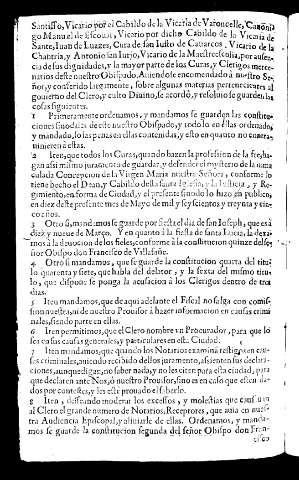 Santisso, Vicario por el Cabildo de la Vicaria de Varoncelle, Canoni-
go Manuel de Escourt, Vicario por dicho Cabildo de la Vicaria de
Sante, Iuan de Luazes, Cura de san Iusto de Cauarcos, Vicario de la
Chantria, y Antonio san Iurjo, Vicario de la Maestrescolia, por ausen-
cia de sus dignidades, y la mayor parte de los Curas, y Clerigos merce-
narios deste nuestro Obispado. Auiendose encomendado à nuestro Se-
ñor, y conferido largamente, sobre algunas materias pertenecientes al
gouierno del Clero, y culto Diuino, se acordò, y resoluiò se guarden las
cosas siguientes.
1 Primeramente ordenamos, y mandamos se guarden las constitu-
ciones sinodales de este nuestro Obispado, y todo lo en ellas ordenado,
y mandado, so las penas en ellas contenidas, y esto en quanto no contra-
uinieren à estas.
2 Iten, que todos los Curas, quando hazen la profession de la fee, ha-
gan assi mismo juramento de guardar, y defender el mysterio de la inma
culada Concepcion de la Virgen Maria nuestra Señora, conforme lo
tiene hecho el Dean, y Cabildo desta santa Iglesia, y la Iusticia, y Re-
gimiento, en forma de Ciudad, y el presente sinodo lo hizo en publico,
en diez deste presente mes de Mayo de mil y seyscientos y treynta y cin-
co años.
3 Otro si, mandamos se guarde por fiesta el dia de san Ioseph, que es à
diez y nueue de Março. Y en quanto à la fiesta de santa Lucia, la dexa-
mos à la deuocion de los fieles, conforme à la constitucion quinze del se-
ñor Obispo don Francisco de Villafañe.
4 Otro si mandamos, que se guarde la constitucion quarta del titu-
lo quarenta y siete, que habla del delator, y la sexta del mismo titu-
lo, que dispone se ponga la acusacion à los Clerigos dentro de tres
dias.
5 Iten mandamos, que de aqui adelante el Fiscal no salga con comis-
sion nuestra, ni de nuestro Prouisor à hazer informacion en causas crimi
nales, siendo parte en ellas.
6 Iten permitimos, que el Clero nombre vn Procurador, para que lo
sea en sus causas generales, y particulares en esta Ciudad.
7 Iten mandamos, que quando los Notarios examinà testigos en cau-
sas criminales, auiendo recibido dellos juramento, assienten sus declara-
ciones, aunque digan, no saber nada, y no les citen para esta ciudad, para
que declaren ante Nos, ò nuestro Prouisor, sino es en caso que esten da-
dos por contestes, y les estè prouado el saberlo.
8 Iten, desseando moderar los excessos, y molestias que causauan
al Clero el grande numero de Notarios, Receptores, que auia en nues-
tra Audiencia Episcopal, y aliuiarle de ellas. Ordenamos, y manda-
mos se guarde la constitucion segunda del señor Obispo don Fran-
cisco